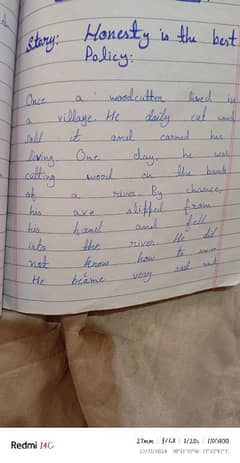 Story: Honesty is the best
Policy:
Once a woodcutter lived in
a village. He daily cut wood
sold it and earned his
living. One day, he was
cutting wood on the bank
of a river. By chance,
his axe slipped from
his hand and fell
into the river. He did
not know how to swim
He became very sad and
Redmi 14C
27mm | f/1.8 | 1/20s | ISO400